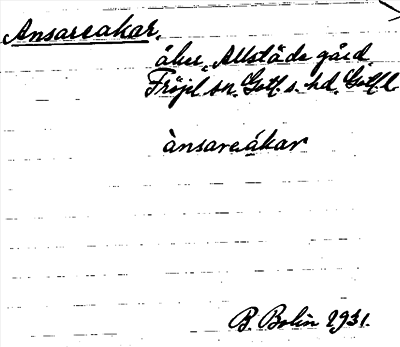 Ansareakar,
åker, Allstäde gård,
Fröjel sn. Gotl. s. hd. Gotl. l
ànsareákar
B. Bolin 1931.